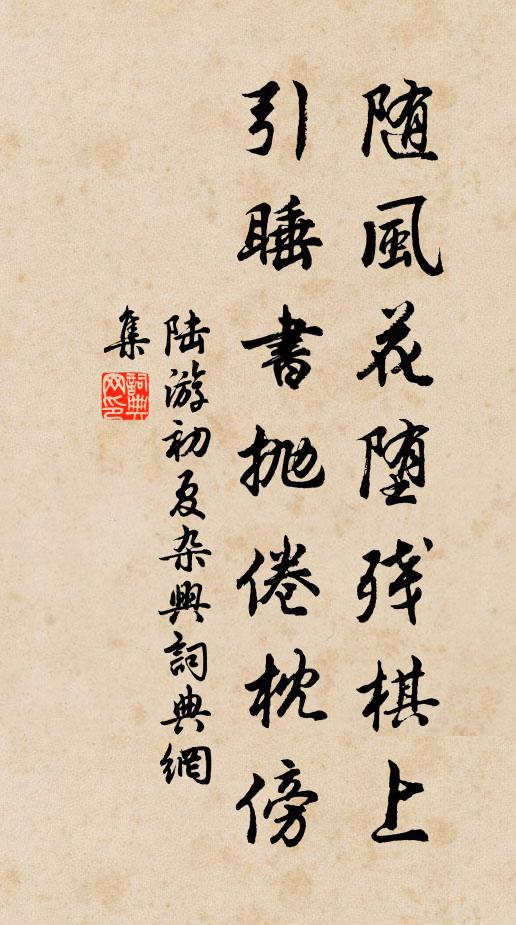 随風花堕残棋上
引睡書抛倦枕傍
陆游初夏杂興詞典網
集
詞典網印